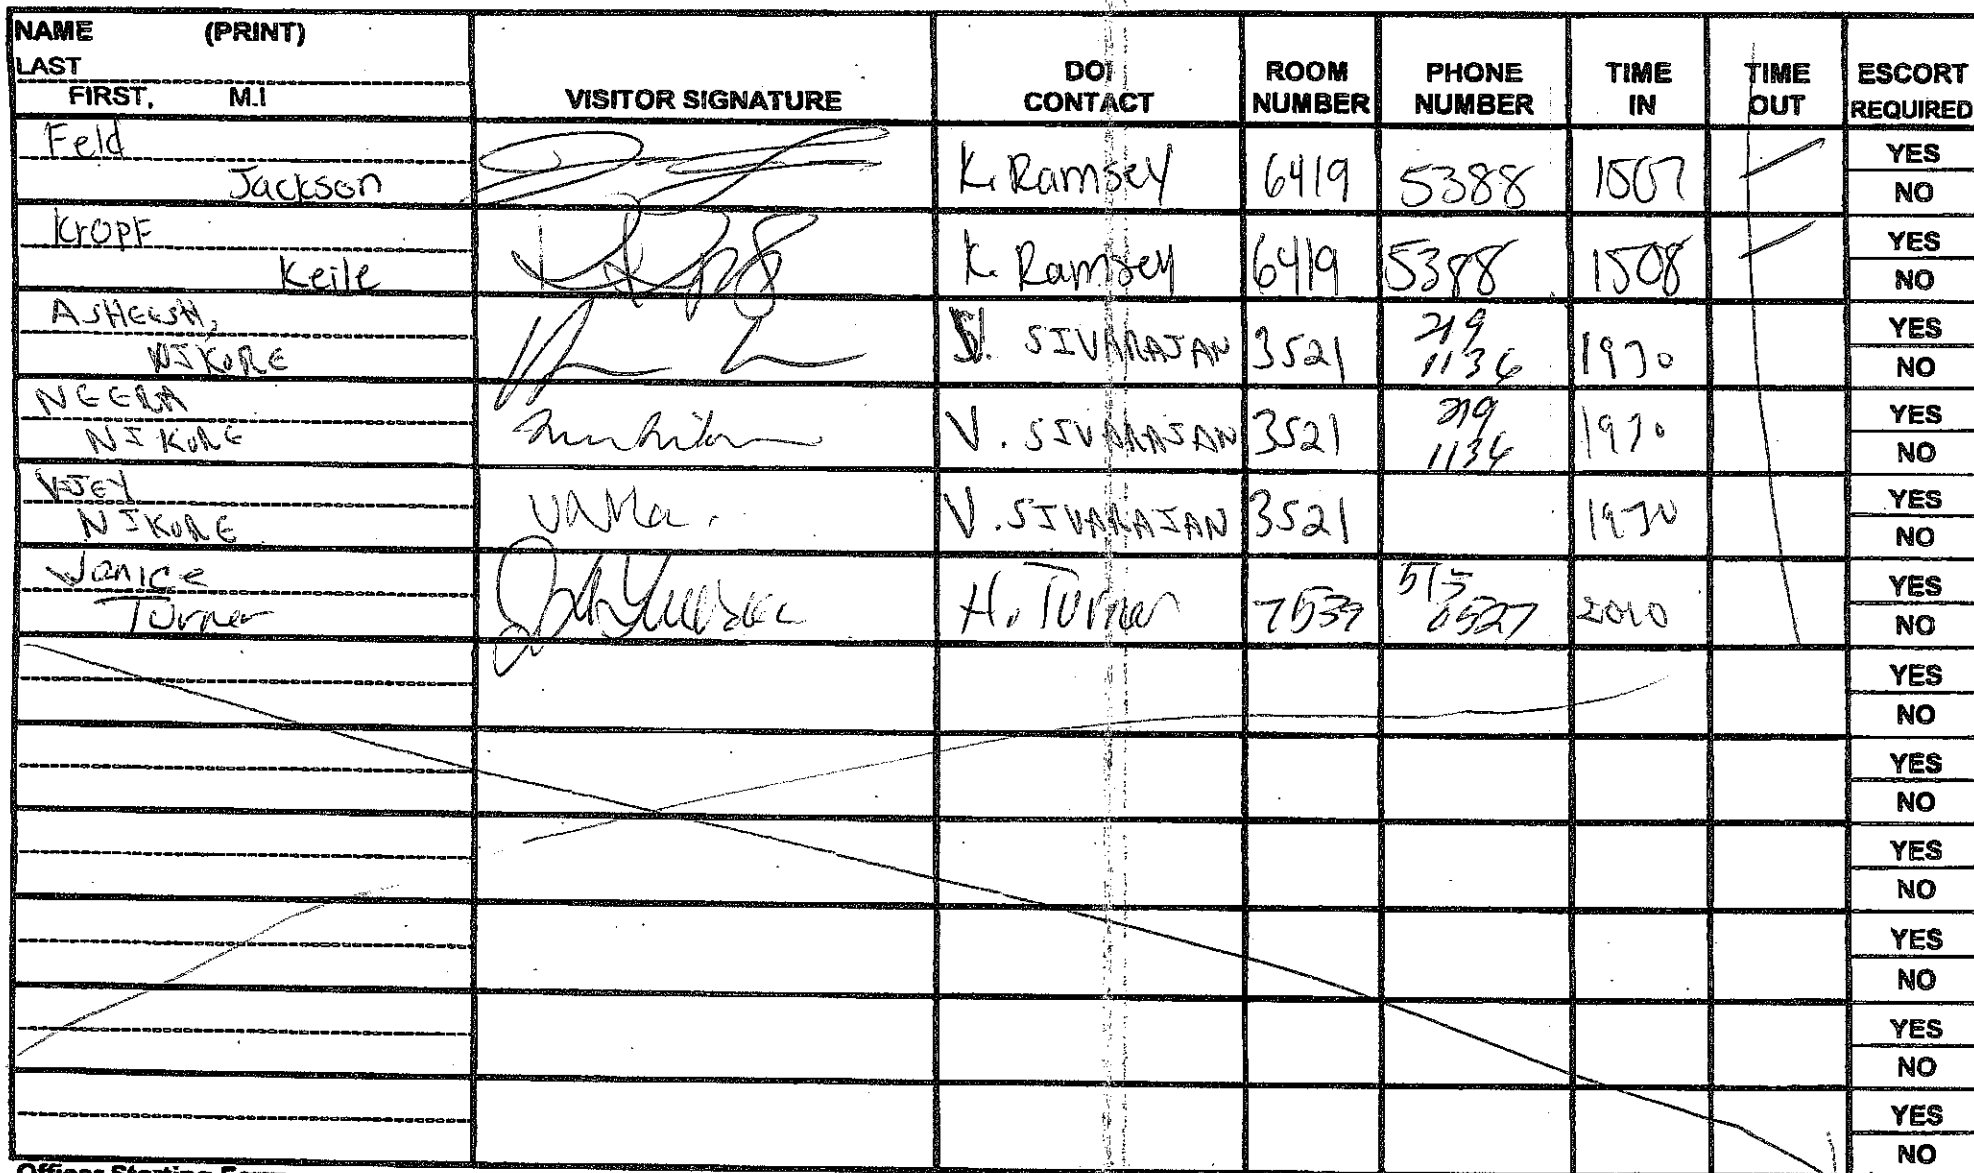 NAME (PRINT)
LAST
FIRST, M.I
VISITOR SIGNATURE
DOI
CONTACT
ROOM
NUMBER
PHONE
NUMBER
TIME
IN
TIME
OUT
ESCORT
REQUIRED
Feld
Jackson
K. Ramsey
6419
5388
1507
YES
NO
Kropf
Keile
K. Ramsey
6419
5388
1508
YES
NO
ASHEESH,
NIKORE
V. SIVARAJAN
3521
219
1136
1930
YES
NO
NEERA
NIKORE
V. SIVARAJAN
3521
219
1136
1930
YES
NO
VIJEY
NIKORE
V. SIVARAJAN
3521
1930
YES
NO
Janice
Turner
H. Turner
7539
513
0527
2010
YES
NO
YES
NO
YES
NO
YES
NO
YES
NO
YES
NO
YES
NO